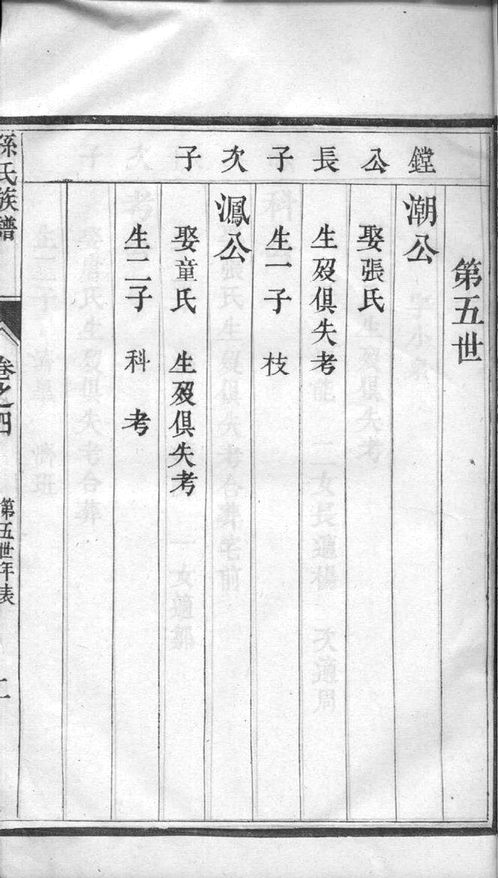 第五世
鏜公長子次子
潮公
娶張氏
生歿俱失考
生一子 枝
渢公
娶童氏 生歿俱失考
生二子 科 考
孫氏族譜 卷之四 第五世年表